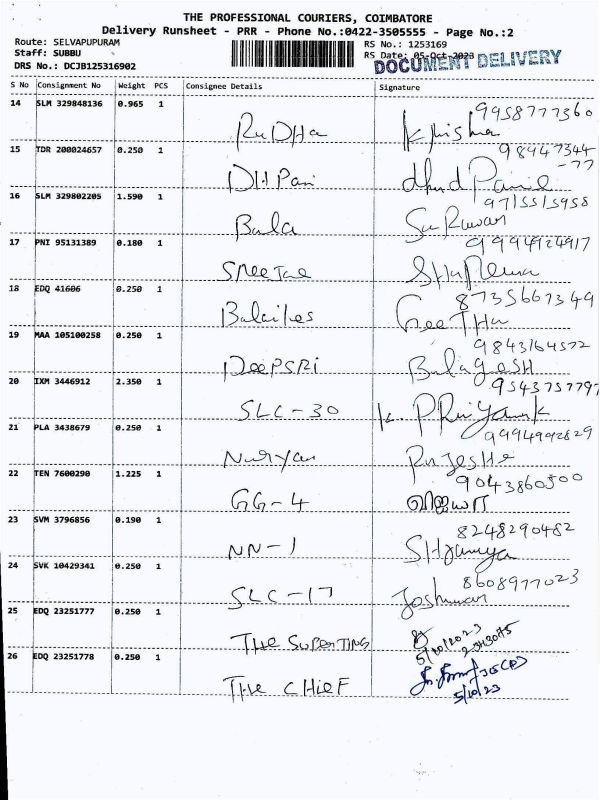 THE PROFESSIONAL COURIERS, COIMBATORE
Delivery Runsheet - PRR - Phone No.:0422-3505555 - Page No.:2
Route: SELVAPUPURAM
Staff: SUBBU
DRS No.: DCJB125316902
RS No.: 1253169
RS Date: 05-Oct-2023
DOCUMENT DELIVERY
S No Consignment No Weight PCS Consignee Details Signature
14 SLM 329848136 0.965 1
9958777360
RuDHa Krisha
15 TDR 200024657 0.250 1
98947344
-77
DHPani
16 SLM 329802205 1.590 1
9715515958
Bala
17 PNI 95131389 0.180 1
9994924917
SReeTae
18 EDQ 41606 0.250 1
8735667349
GeeTHa
19 MAA 105100258 0.250 1
9843164572
DeePSRi BalageSH
20 IXM 3446912 2.350 1
9543757797
SLC-30 K. PRiyank
21 PLA 3438679 0.250 1
9994992829
RajesHa
22 TEN 7600290 1.225 1
9043860500
GG-4 விஜயா
23 SVM 3796856 0.190 1
8248290482
NN-1
24 SVK 10429341 0.250 1
8608977023
SLC-17
25 EDQ 23251777 0.250 1
THe SuPenTing
5/10/2023
26 EDQ 23251778 0.250 1
THe CHieF
5/10/23